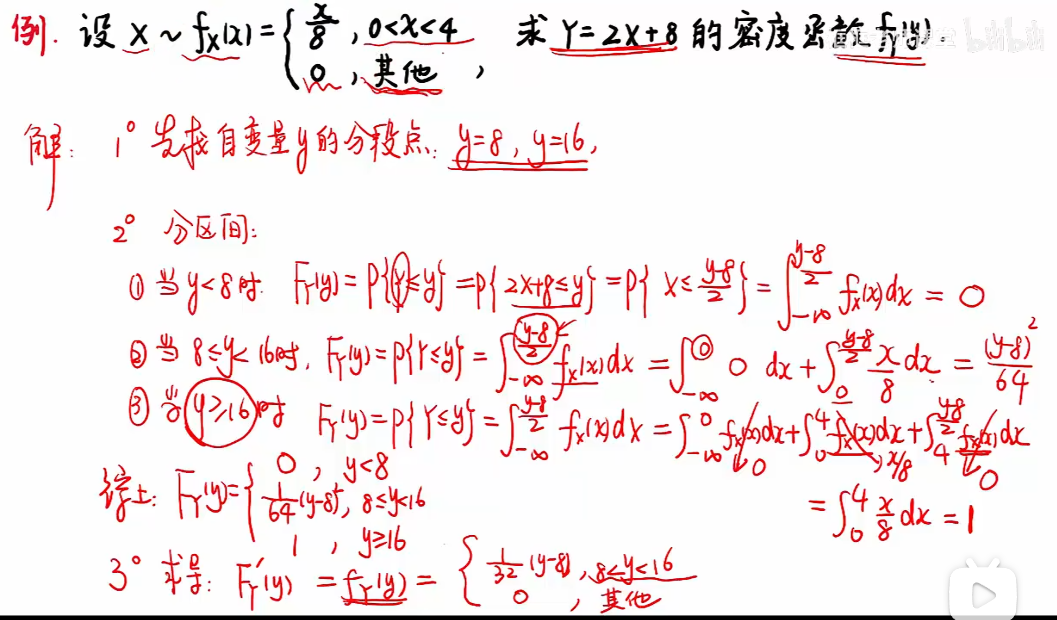 例. 设 X ~ f_X(x) = { x/8 , 0<x<4 求 Y=2X+8 的密度函数 f_Y(y).
0 , 其他 ,
解: 1° 先找自变量y的分段点: y=8, y=16,
2° 分区间:
① 当 y<8时. F_Y(y) = P{Y≤y} = P{2X+8≤y} = P{X≤(y-8)/2} = ∫_{-∞}^{(y-8)/2} f_X(x)dx = 0
② 当 8≤y<16时, F_Y(y) = P{Y≤y} = ∫_{-∞}^{(y-8)/2} f_X(x)dx = ∫_{-∞}^{0} 0 dx + ∫_{0}^{(y-8)/2} x/8 dx = (y-8)²/64
③ 当 y≥16时 F_Y(y) = P{Y≤y} = ∫_{-∞}^{(y-8)/2} f_X(x)dx = ∫_{-∞}^{0} f_X(x)dx + ∫_{0}^{4} f_X(x)dx + ∫_{4}^{(y-8)/2} f_X(x)dx
0 x/8 0
= ∫_{0}^{4} x/8 dx = 1
综上: F_Y(y) = { 0 , y<8
1/64 (y-8)², 8≤y<16
1 , y≥16
3° 求导: F_Y'(y) = f_Y(y) = { 1/32 (y-8), 8≤y<16
0 , 其他
bilibili